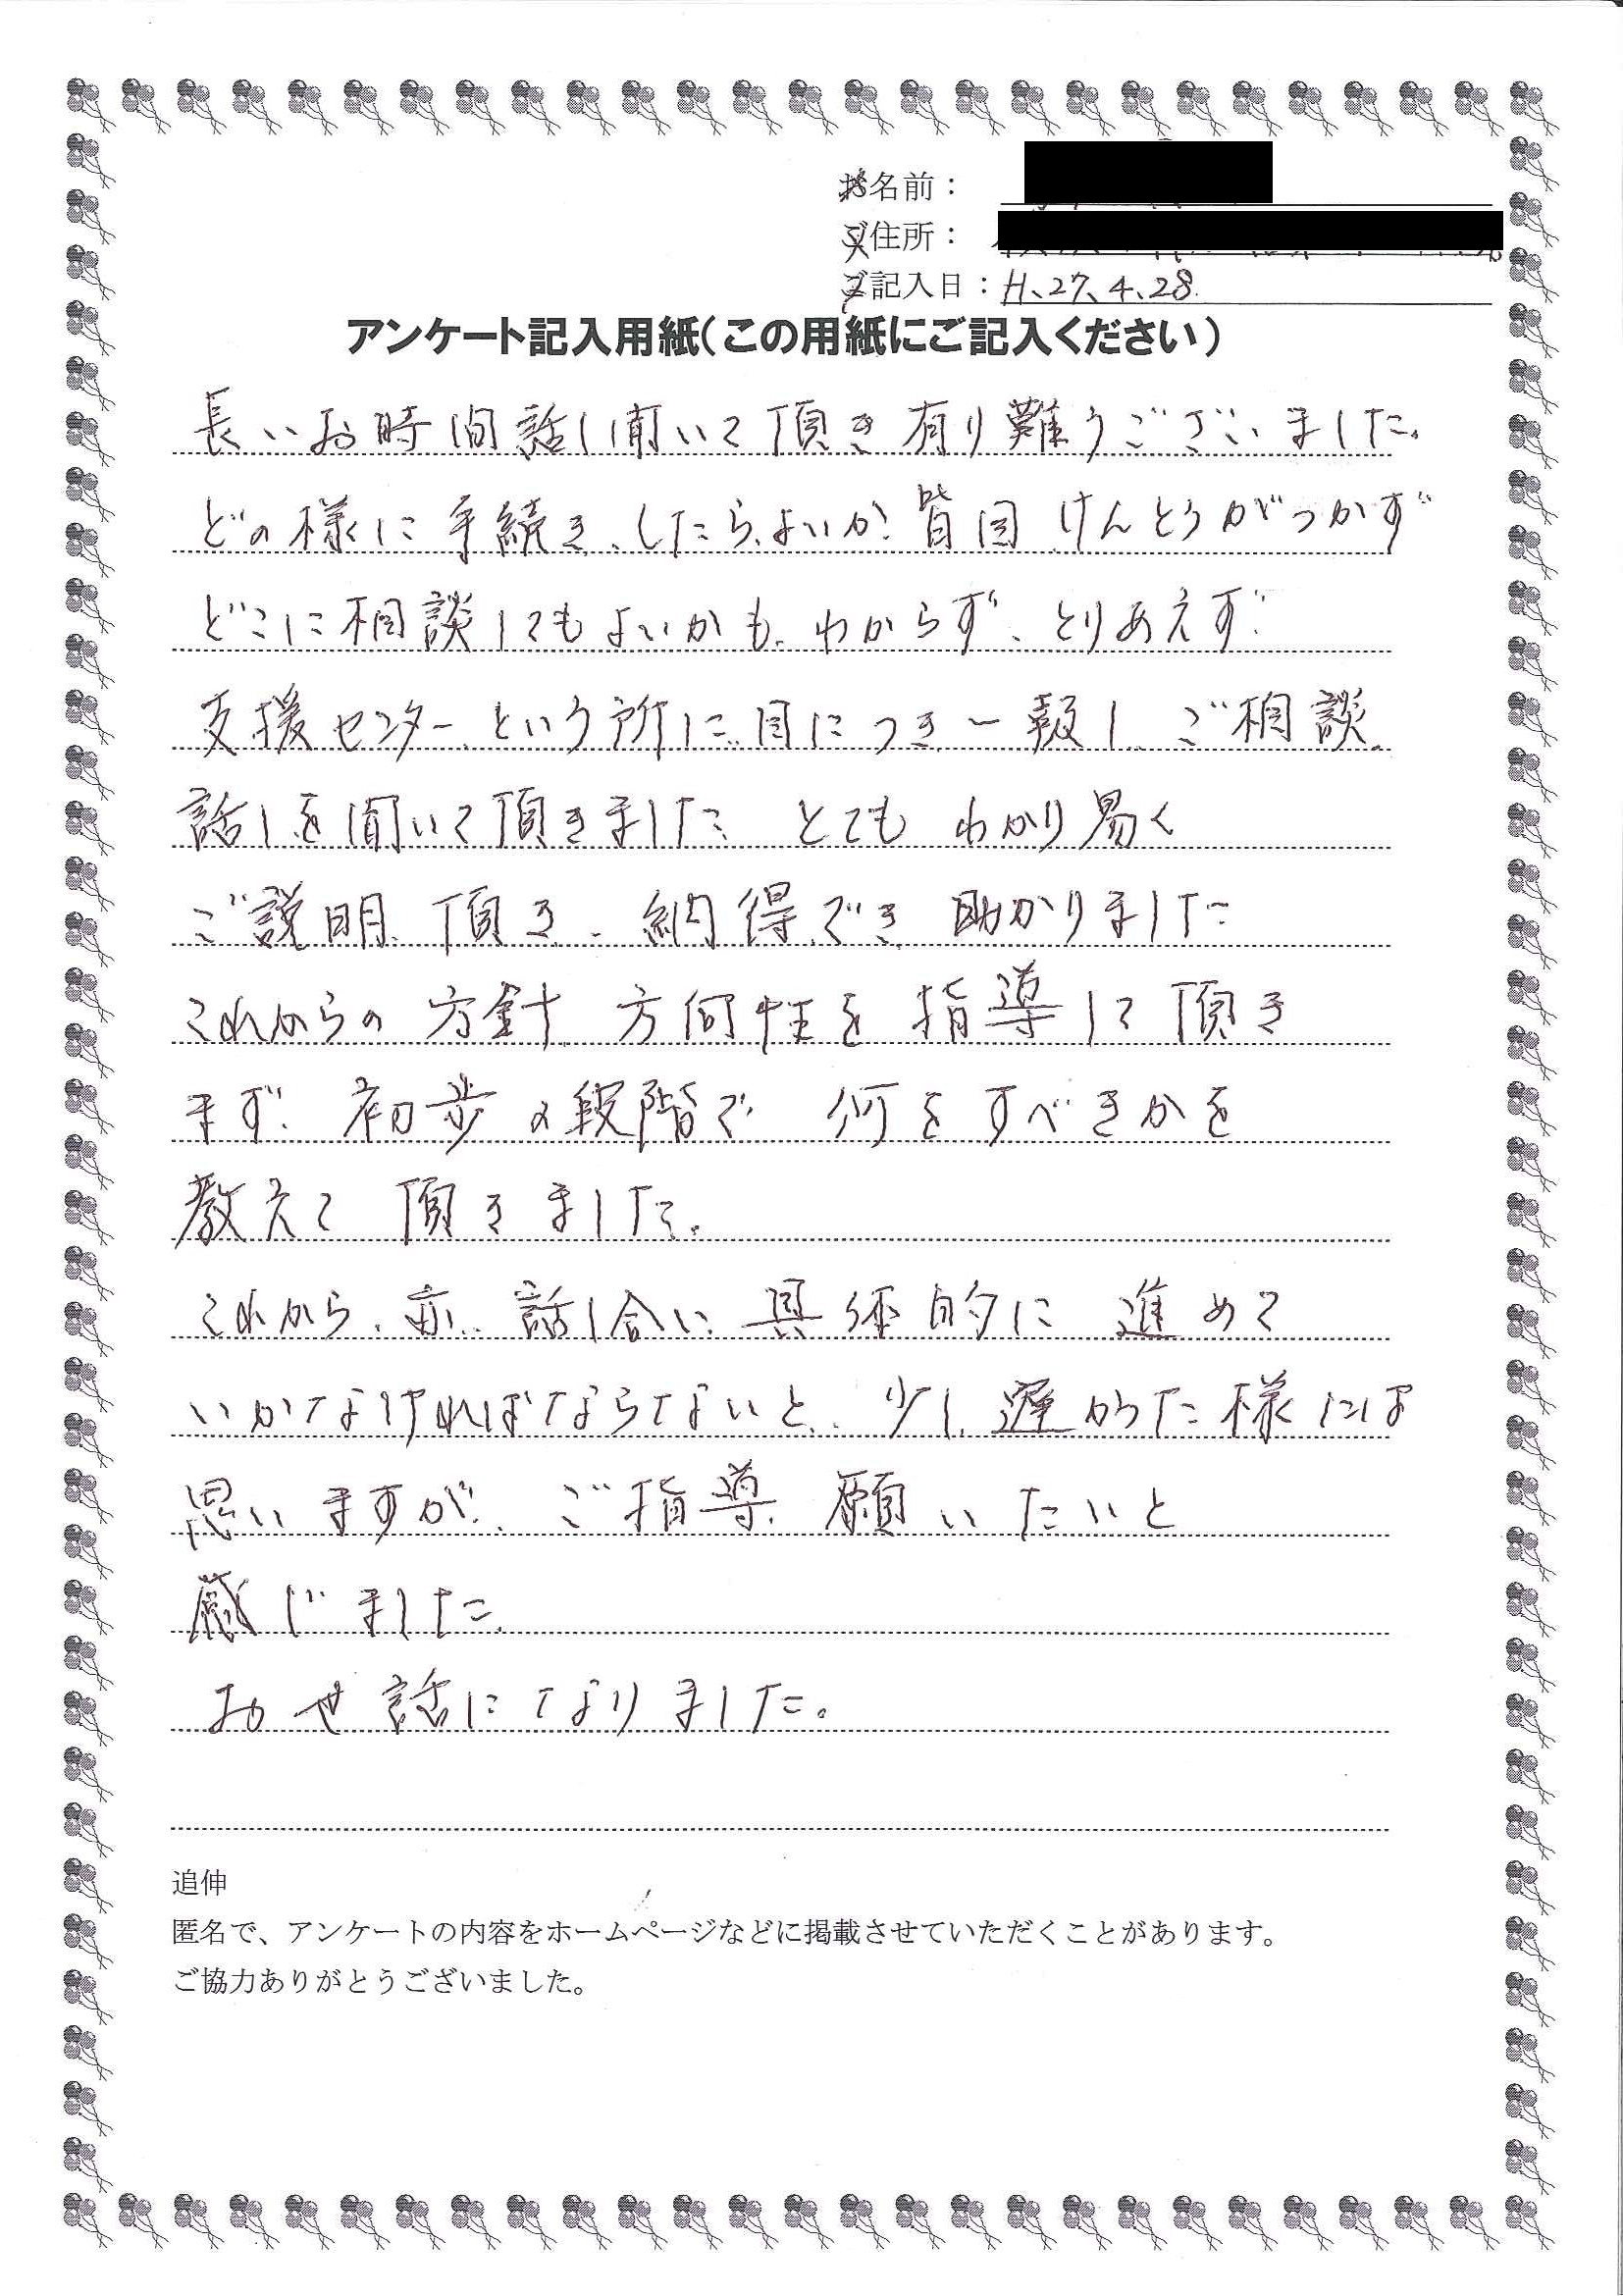 お名前：
ご住所：
ご記入日：H、27、4、28
アンケート記入用紙（この用紙にご記入ください）
長いお時間話し聞いて頂き有り難うございました。
どの様に手続き、したら、よいか皆目けんとうがつかず
どこに相談してもよいかも、わからず、とりあえず
支援センター、という所に目につき一報し、ご相談
話しを聞いて頂きました、とてもわかり易く
ご説明、頂き、納得でき助かりました
これからの方針、方向性を指導して頂き
まず、初歩の段階で何をすべきかを
教えて頂きました。
これから、亦、話し合い、具体的に進めて
いかなければならないと、少し遅かった様には
思いますが、ご指導、願いたいと
感じました、
おせ話になりました。
追伸
匿名で、アンケートの内容をホームページなどに掲載させていただくことがあります。
ご協力ありがとうございました。